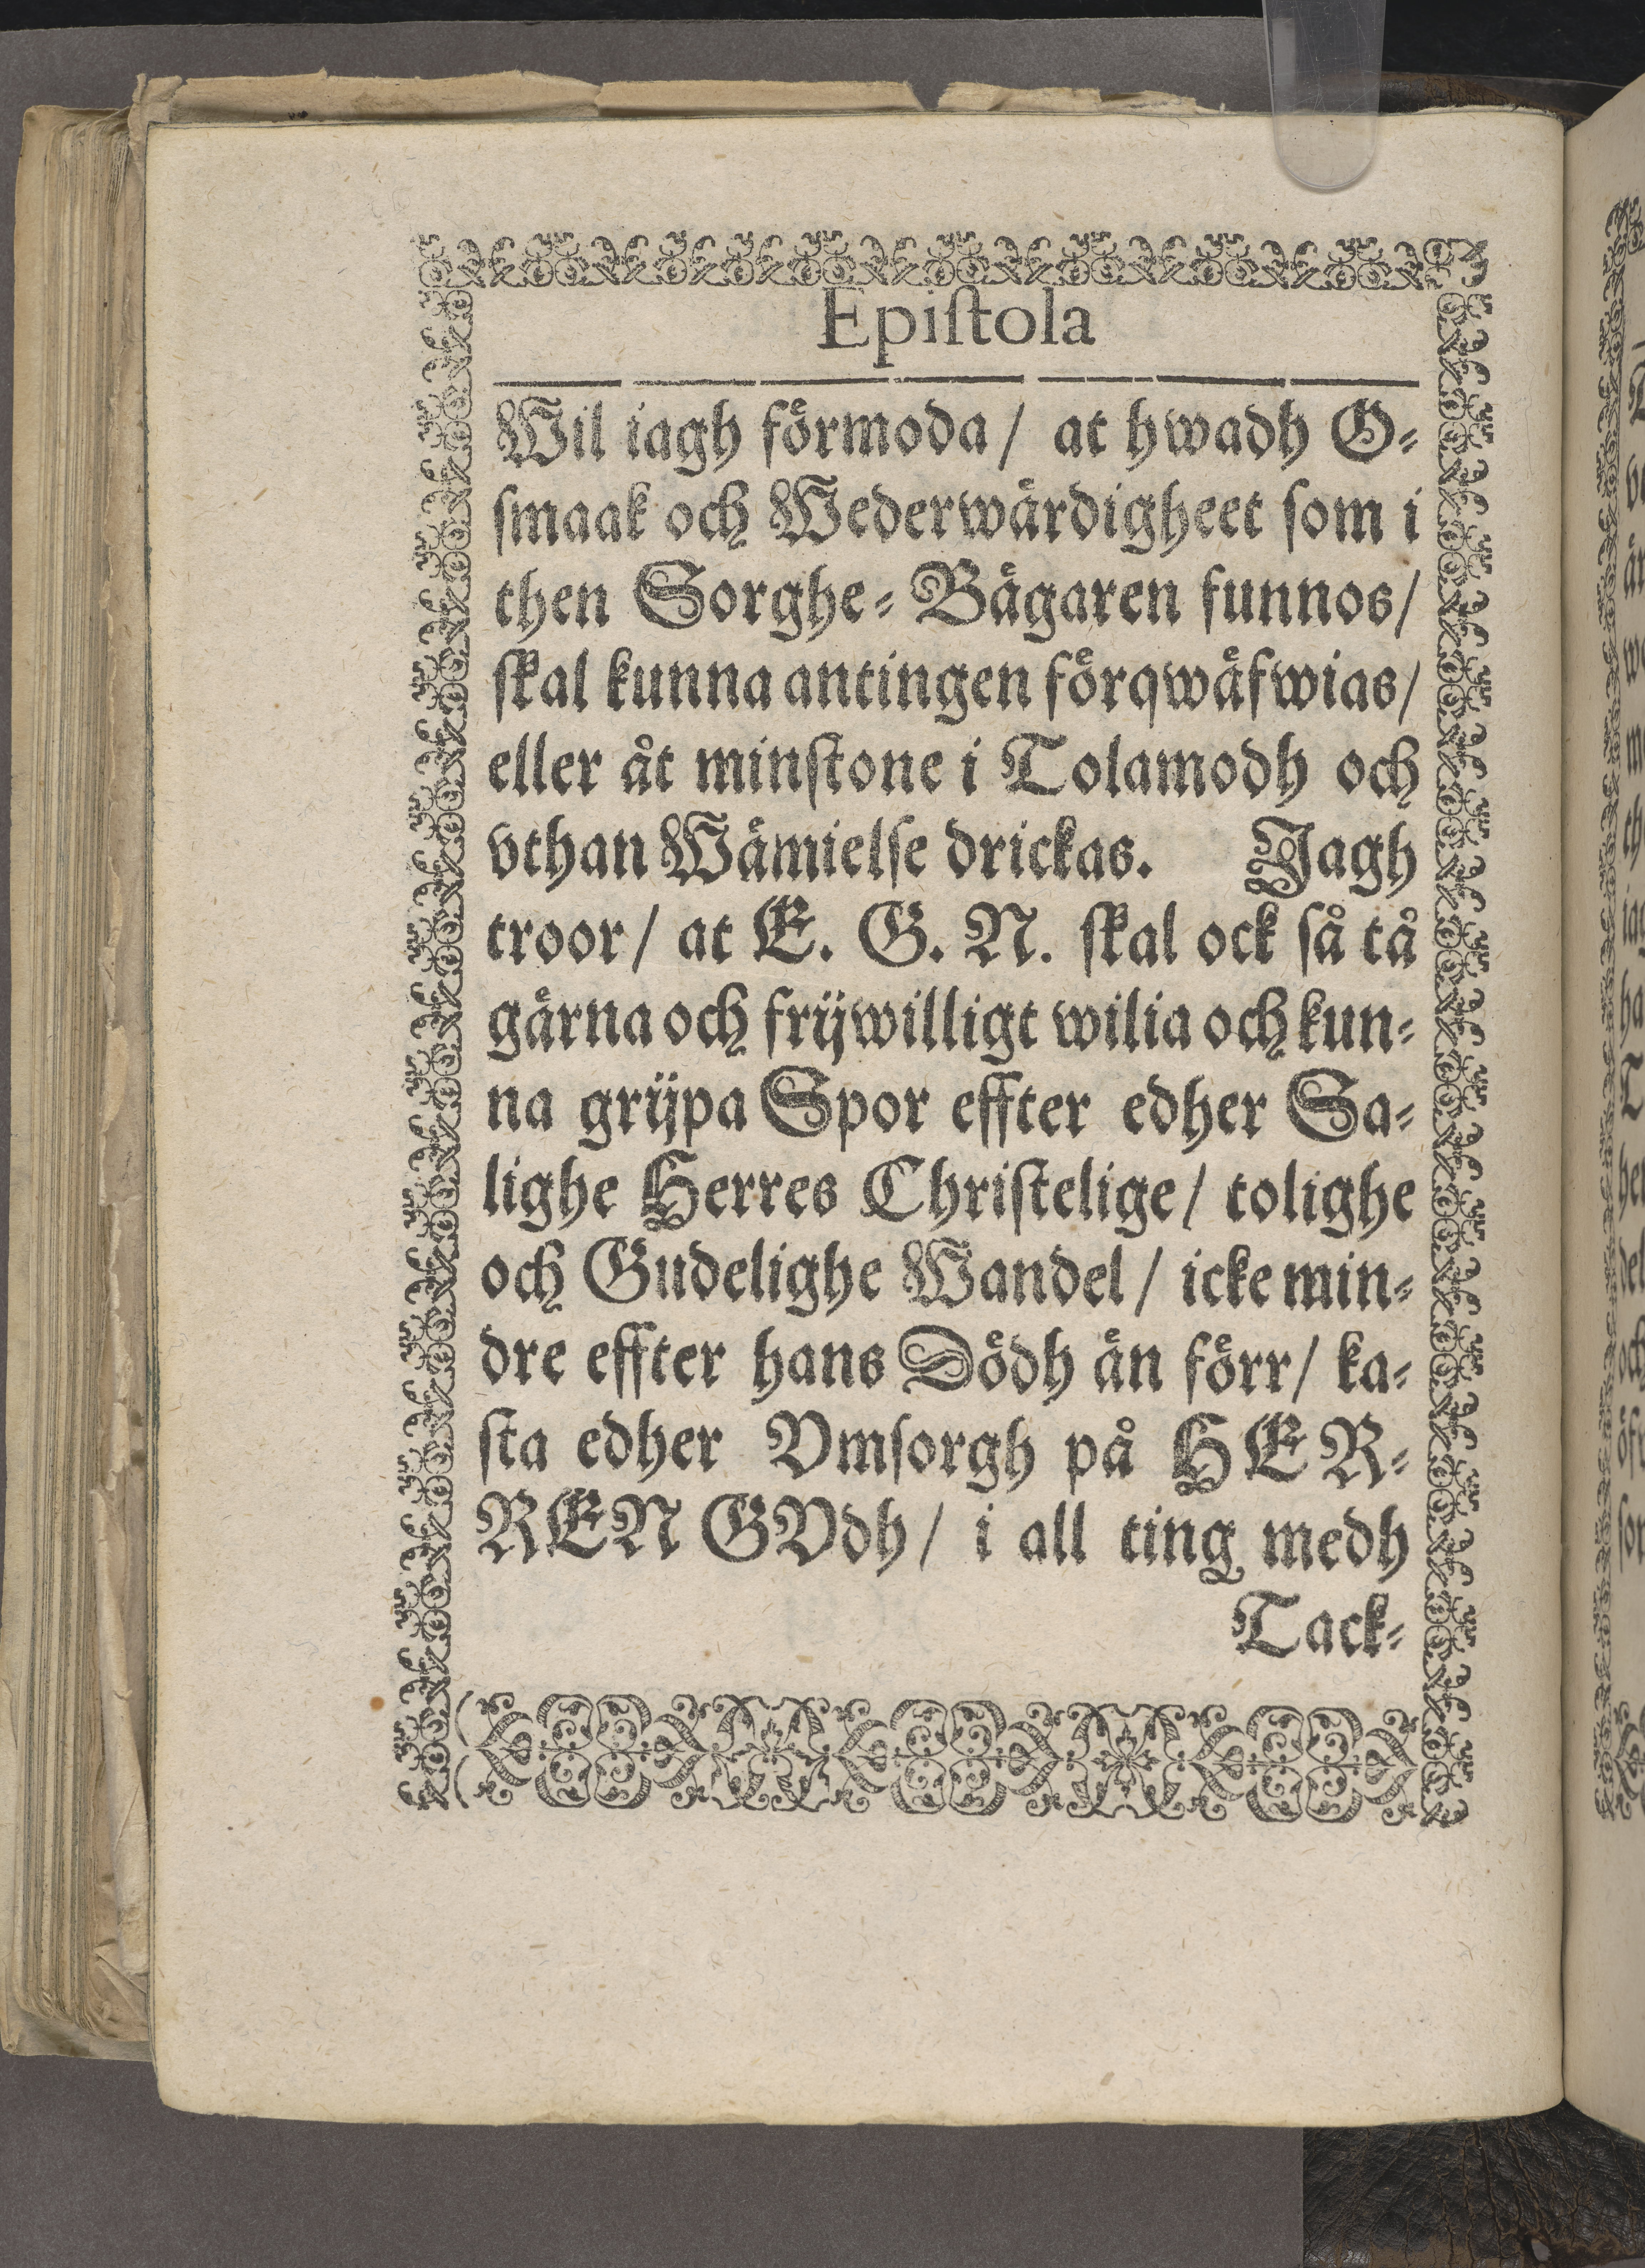 Epiſtola
Wil iagh förmoda / at hwadh O-
ſmaak och Wederwärdigheet ſom i
then Sorghe-Bägaren funnos/
ſkal kunna antingen förqwäfwias/
eller åt minſtone i Tolamodh och
vthan Wämielſe drickas. Jagh
troor / at E. G. N. ſkal ock ſå tå
gärna och frijwilligt wilia och kun-
na grijpa Spor effter edher Sa-
lighe Herres Chriſtelige / tolighe
och Gudelighe Wandel / icke min-
dre effter hans Dödh än förr / ka-
ſta edher Vmſorgh på HER-
REN GVdh / i all ting medh
Tack-